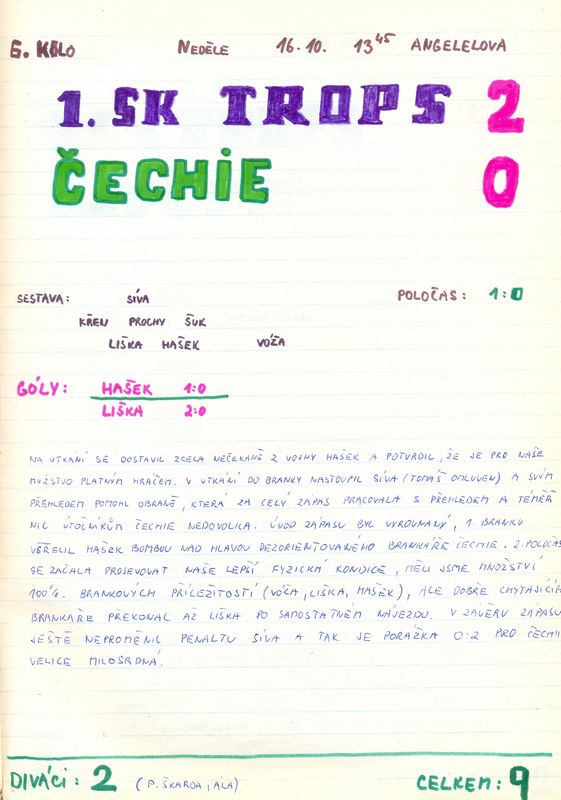 6. KOLO NEDĚLE 16.10. 13⁴⁵ ANGELELOVA
1. SK TROPS 2
ČECHIE 0
SESTAVA: SÍVA POLOČAS: 1:0
KŘEN PROCHY ŠUK
LIŠKA HAŠEK VOŽA
GÓLY: HAŠEK 1:0
LIŠKA 2:0
NA UTKÁNÍ SE DOSTAVIL ZCELA NEČEKANĚ Z VOJNY HAŠEK A POTVRDIL, ŽE JE PRO NAŠE
MUŽSTVO PLATNÝM HRÁČEM. V UTKÁNÍ DO BRANKY NASTOUPIL SÍVA (TOMÁŠ OMLUVEN) A SVÝM
PŘEHLEDEM POMOHL OBRANĚ, KTERÁ ZA CELÝ ZÁPAS PRACOVALA S PŘEHLEDEM A TÉMĚŘ
NIC ÚTOČNÍKŮM ČECHIE NEDOVOLILA. ÚVOD ZÁPASU BYL VYROVNANÝ, 1. BRANKU
VSTŘELIL HAŠEK BOMBOU NAD HLAVOU DEZORIENTOVANÉHO BRANKÁŘE ČECHIE. 2. POLOČAS
SE ZAČALA PROJEVOVAT NAŠE LEPŠÍ FYZICKÁ KONDICE, MĚLI JSME MNOŽSTVÍ
100% BRANKOVÝCH PŘÍLEŽITOSTÍ (VOŽA, LIŠKA, HAŠEK), ALE DOBŘE CHYTAJÍCÍH
BRANKÁŘE PŘEKONAL AŽ LIŠKA PO SAMOSTATNÉM NÁJEZDU. V ZÁVĚRU ZÁPASU
JEŠTĚ NEPROMĚNIL PENALTU SÍVA A TAK JE PORÁŽKA 0:2 PRO ČECHII
VELICE MILOSRDNÁ.
DIVÁCI: 2 (P. ŠKARDA, ALA) CELKEM: 9